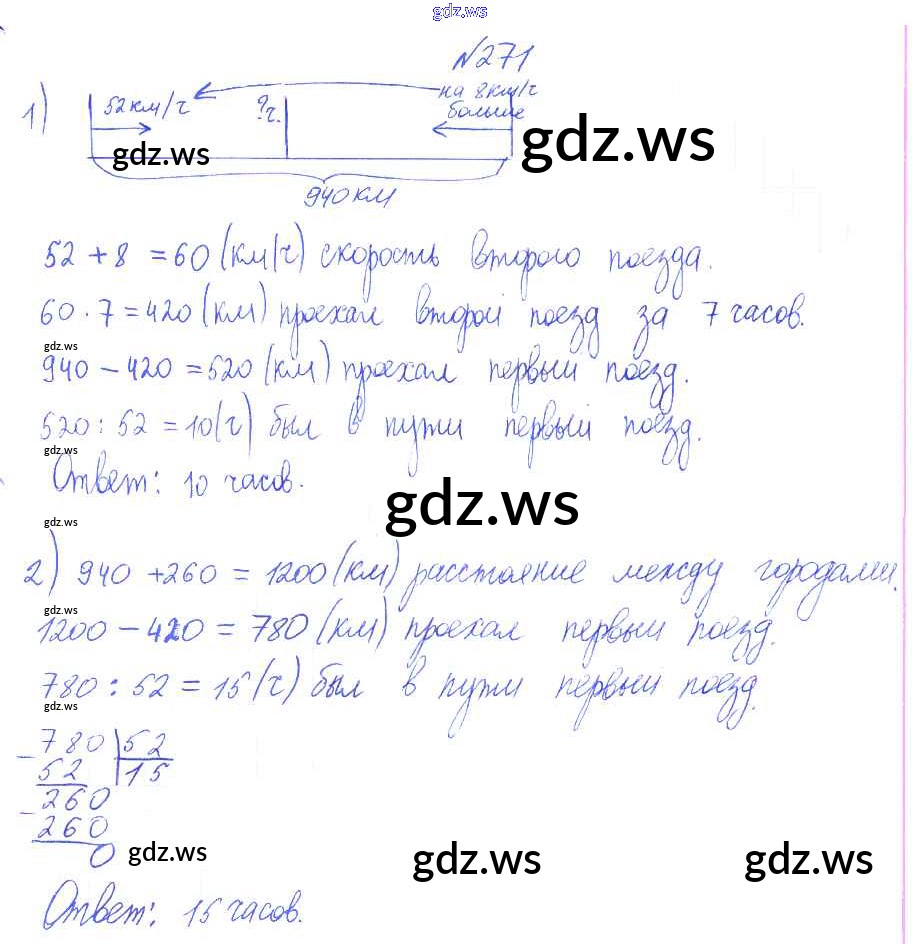 gdz.ws
№271
1) 52км/ч ?ч. на 8км/ч больше
gdz.ws gdz.ws
940км
52 + 8 = 60 (км/ч) скорость второго поезда.
60 · 7 = 420 (км) проехал второй поезд за 7 часов.
gdz.ws
940 – 420 = 520 (км) проехал первый поезд.
520 : 52 = 10(ч) был в пути первый поезд.
gdz.ws
Ответ: 10 часов.
gdz.ws
gdz.ws
2) 940 + 260 = 1200 (км) расстояние между городами.
gdz.ws
1200 – 420 = 780 (км) проехал первый поезд.
780 : 52 = 15 (ч) был в пути первый поезд.
gdz.ws
– 780 | 52
52 | 15
– 260
260
0
gdz.ws gdz.ws gdz.ws
Ответ: 15 часов.